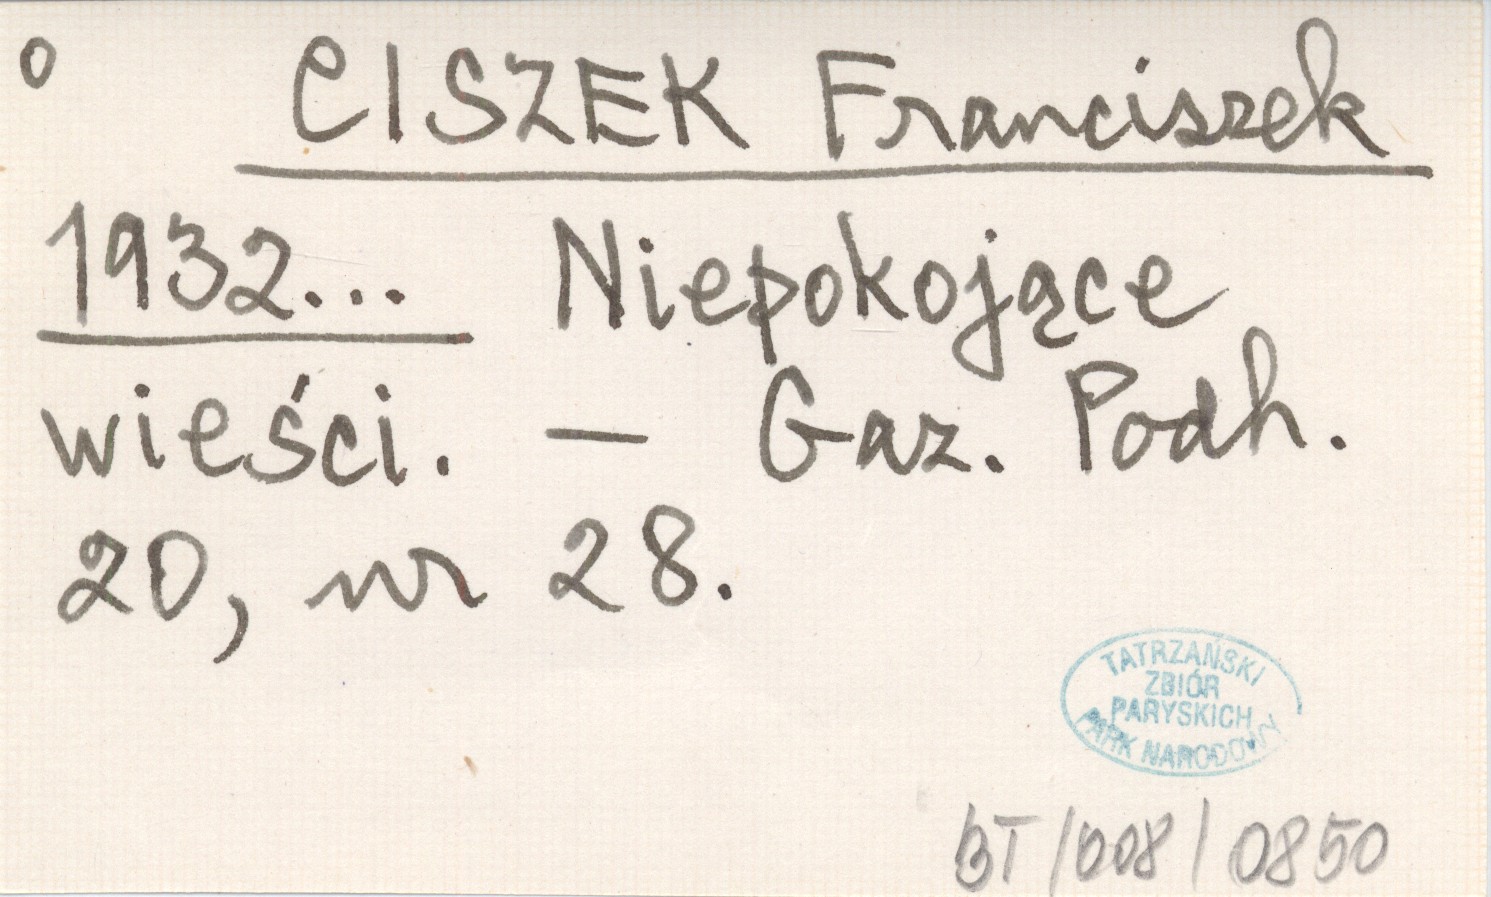 o CISZEK Franciszek
1932... Niepokojące
wieści. — Gaz. Podh.
20, nr 28.
TATRZAŃSKI
ZBIÓR
PARYSKICH
PARK NARODOWY
BT/008/0850